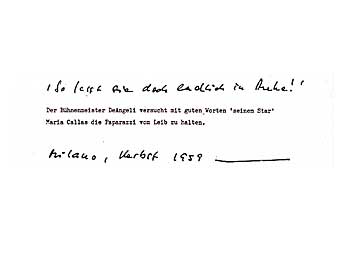 'So lasst sie doch endlich in Ruhe!'
Der Bühnenmeister DeAngeli versucht mit guten Worten 'seinen Star'
Maria Callas die Paparazzi von Leib zu halten.
Milano, Herbst 1959